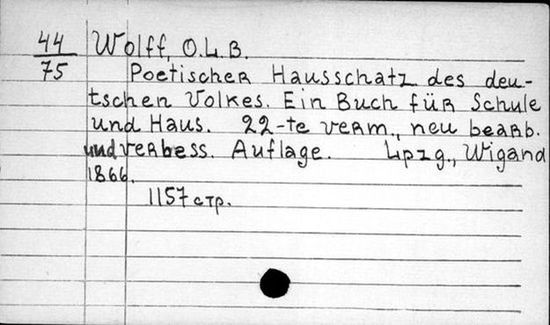 44 Wolff, O.L.B.
75 Poetischer Hausschatz des deu-
tschen Volkes. Ein Buch für Schule
und Haus. 22-te verm., neu bearb.
und verbess. Auflage. Lpzg., Wigand
1866.
1157 стр.